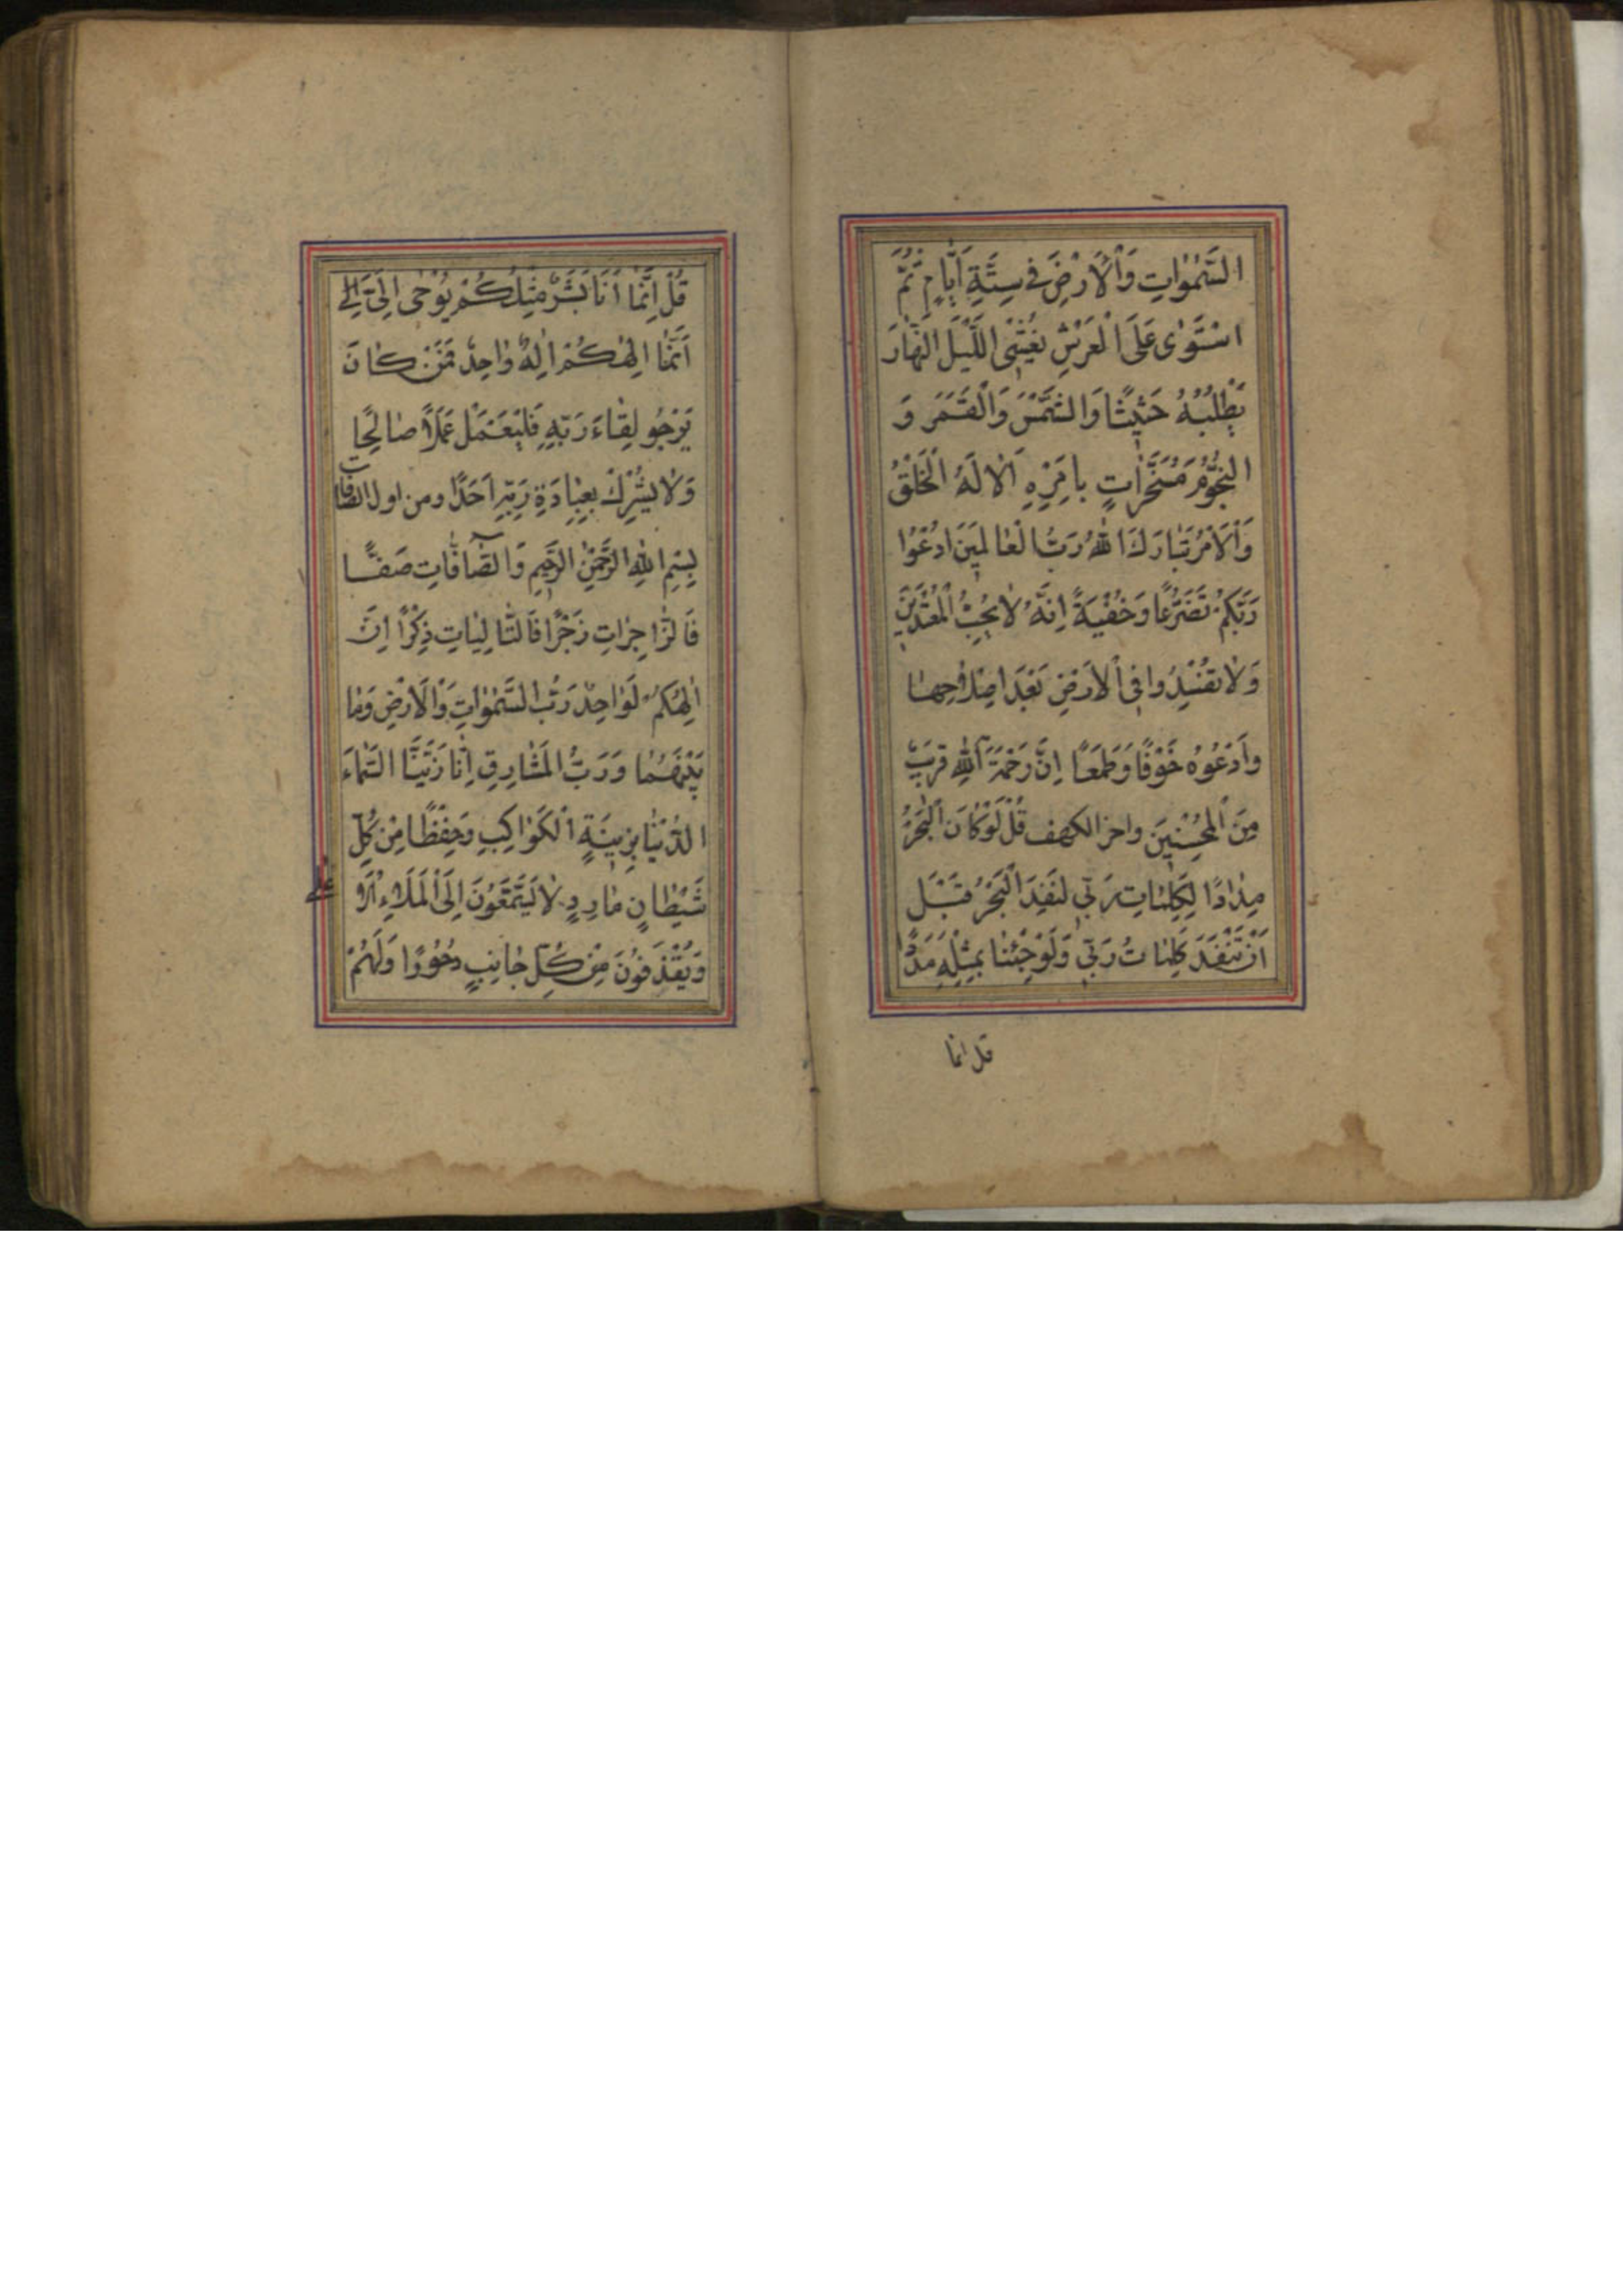 السَّمٰوٰاتِ وَالْاَرْضَ فی سِتَّةِ اَیّٰامٍ ثُمَّ
اسْتَوٰی عَلَی الْعَرْشِ یُغْشِی اللَّیْلَ النَّهٰارَ
یَطْلُبُهُ حَثیثًا وَالشَّمْسَ وَالْقَمَرَ وَ
النُّجُومَ مُسَخَّرٰاتٍ بِاَمْرِهِ اَلٰا لَهُ الْخَلْقُ
وَالْاَمْرُ تَبٰارَكَ اللّٰهُ رَبُّ الْعٰالَمینَ ادْعُوا
رَبَّكُمْ تَضَرُّعًا وَخُفْیَةً اِنَّهُ لٰا یُحِبُّ الْمُعْتَدینَ
وَلٰا تُفْسِدُوا فِی الْاَرْضِ بَعْدَ اِصْلٰاحِهٰا
وَادْعُوهُ خَوْفًا وَطَمَعًا اِنَّ رَحْمَتَ اللّٰهِ قَریبٌ
مِنَ الْمُحْسِنینَ واخر الکهف قُلْ لَوْ كٰانَ الْبَحْرُ
مِدٰادًا لِكَلِمٰاتِ رَبّی لَنَفِدَ الْبَحْرُ قَبْلَ
اَنْ تَنْفَدَ كَلِمٰاتُ رَبّی وَلَوْ جِئْنٰا بِمِثْلِهِ مَدَدًا
قل انما
قُلْ اِنَّمٰا اَنَا بَشَرٌ مِثْلُكُمْ یُوحٰی اِلَیَّ
اَنَّمٰا اِلٰهُكُمْ اِلٰهٌ وٰاحِدٌ فَمَنْ كٰانَ
یَرْجُو لِقٰاءَ رَبِّهِ فَلْیَعْمَلْ عَمَلًا صٰالِحًا
وَلٰا یُشْرِكْ بِعِبٰادَةِ رَبِّهِ اَحَدًا ومن اول الصافات
بِسْمِ اللّٰهِ الرَّحْمٰنِ الرَّحیمِ وَالصّٰٓافّٰاتِ صَفًّا
فَالزّٰاجِرٰاتِ زَجْرًا فَالتّٰالِیٰاتِ ذِكْرًا اِنَّ
اِلٰهَكُمْ لَوٰاحِدٌ رَبُّ السَّمٰوٰاتِ وَالْاَرْضِ وَمٰا
بَیْنَهُمٰا وَرَبُّ الْمَشٰارِقِ اِنّٰا زَیَّنَّا السَّمٰاءَ
الدُّنْیٰا بِزینَةٍ الْكَوٰاكِبِ وَحِفْظًا مِنْ كُلِّ
شَیْطٰانٍ مٰارِدٍ لٰا یَسَّمَّعُونَ اِلَی الْمَلَاءِ الْاَ
عْلٰی
وَیُقْذَفُونَ مِنْ كُلِّ جٰانِبٍ دُحُورًا وَلَهُمْ